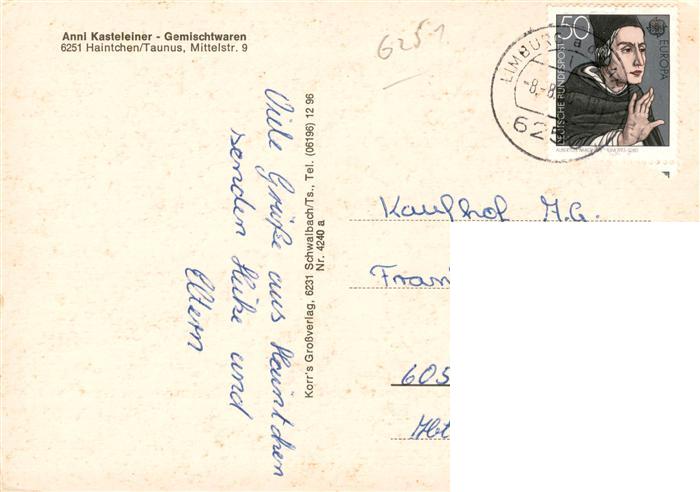 Anni Kasteleiner - Gemischtwaren
6251 Haintchen/Taunus, Mittelstr. 9
6251
LIMBURG
-8.-8.
62
50
DEUTSCHE BUNDESPOST
EUROPA
Viele Grüße aus Haintchen
senden Heike und
Eltern
Korr's Großverlag, 6231 Schwalbach/Ts., Tel. (06196) 12 96
Nr. 4240 a
Kaufhof A.G.
Fran
605
Abt